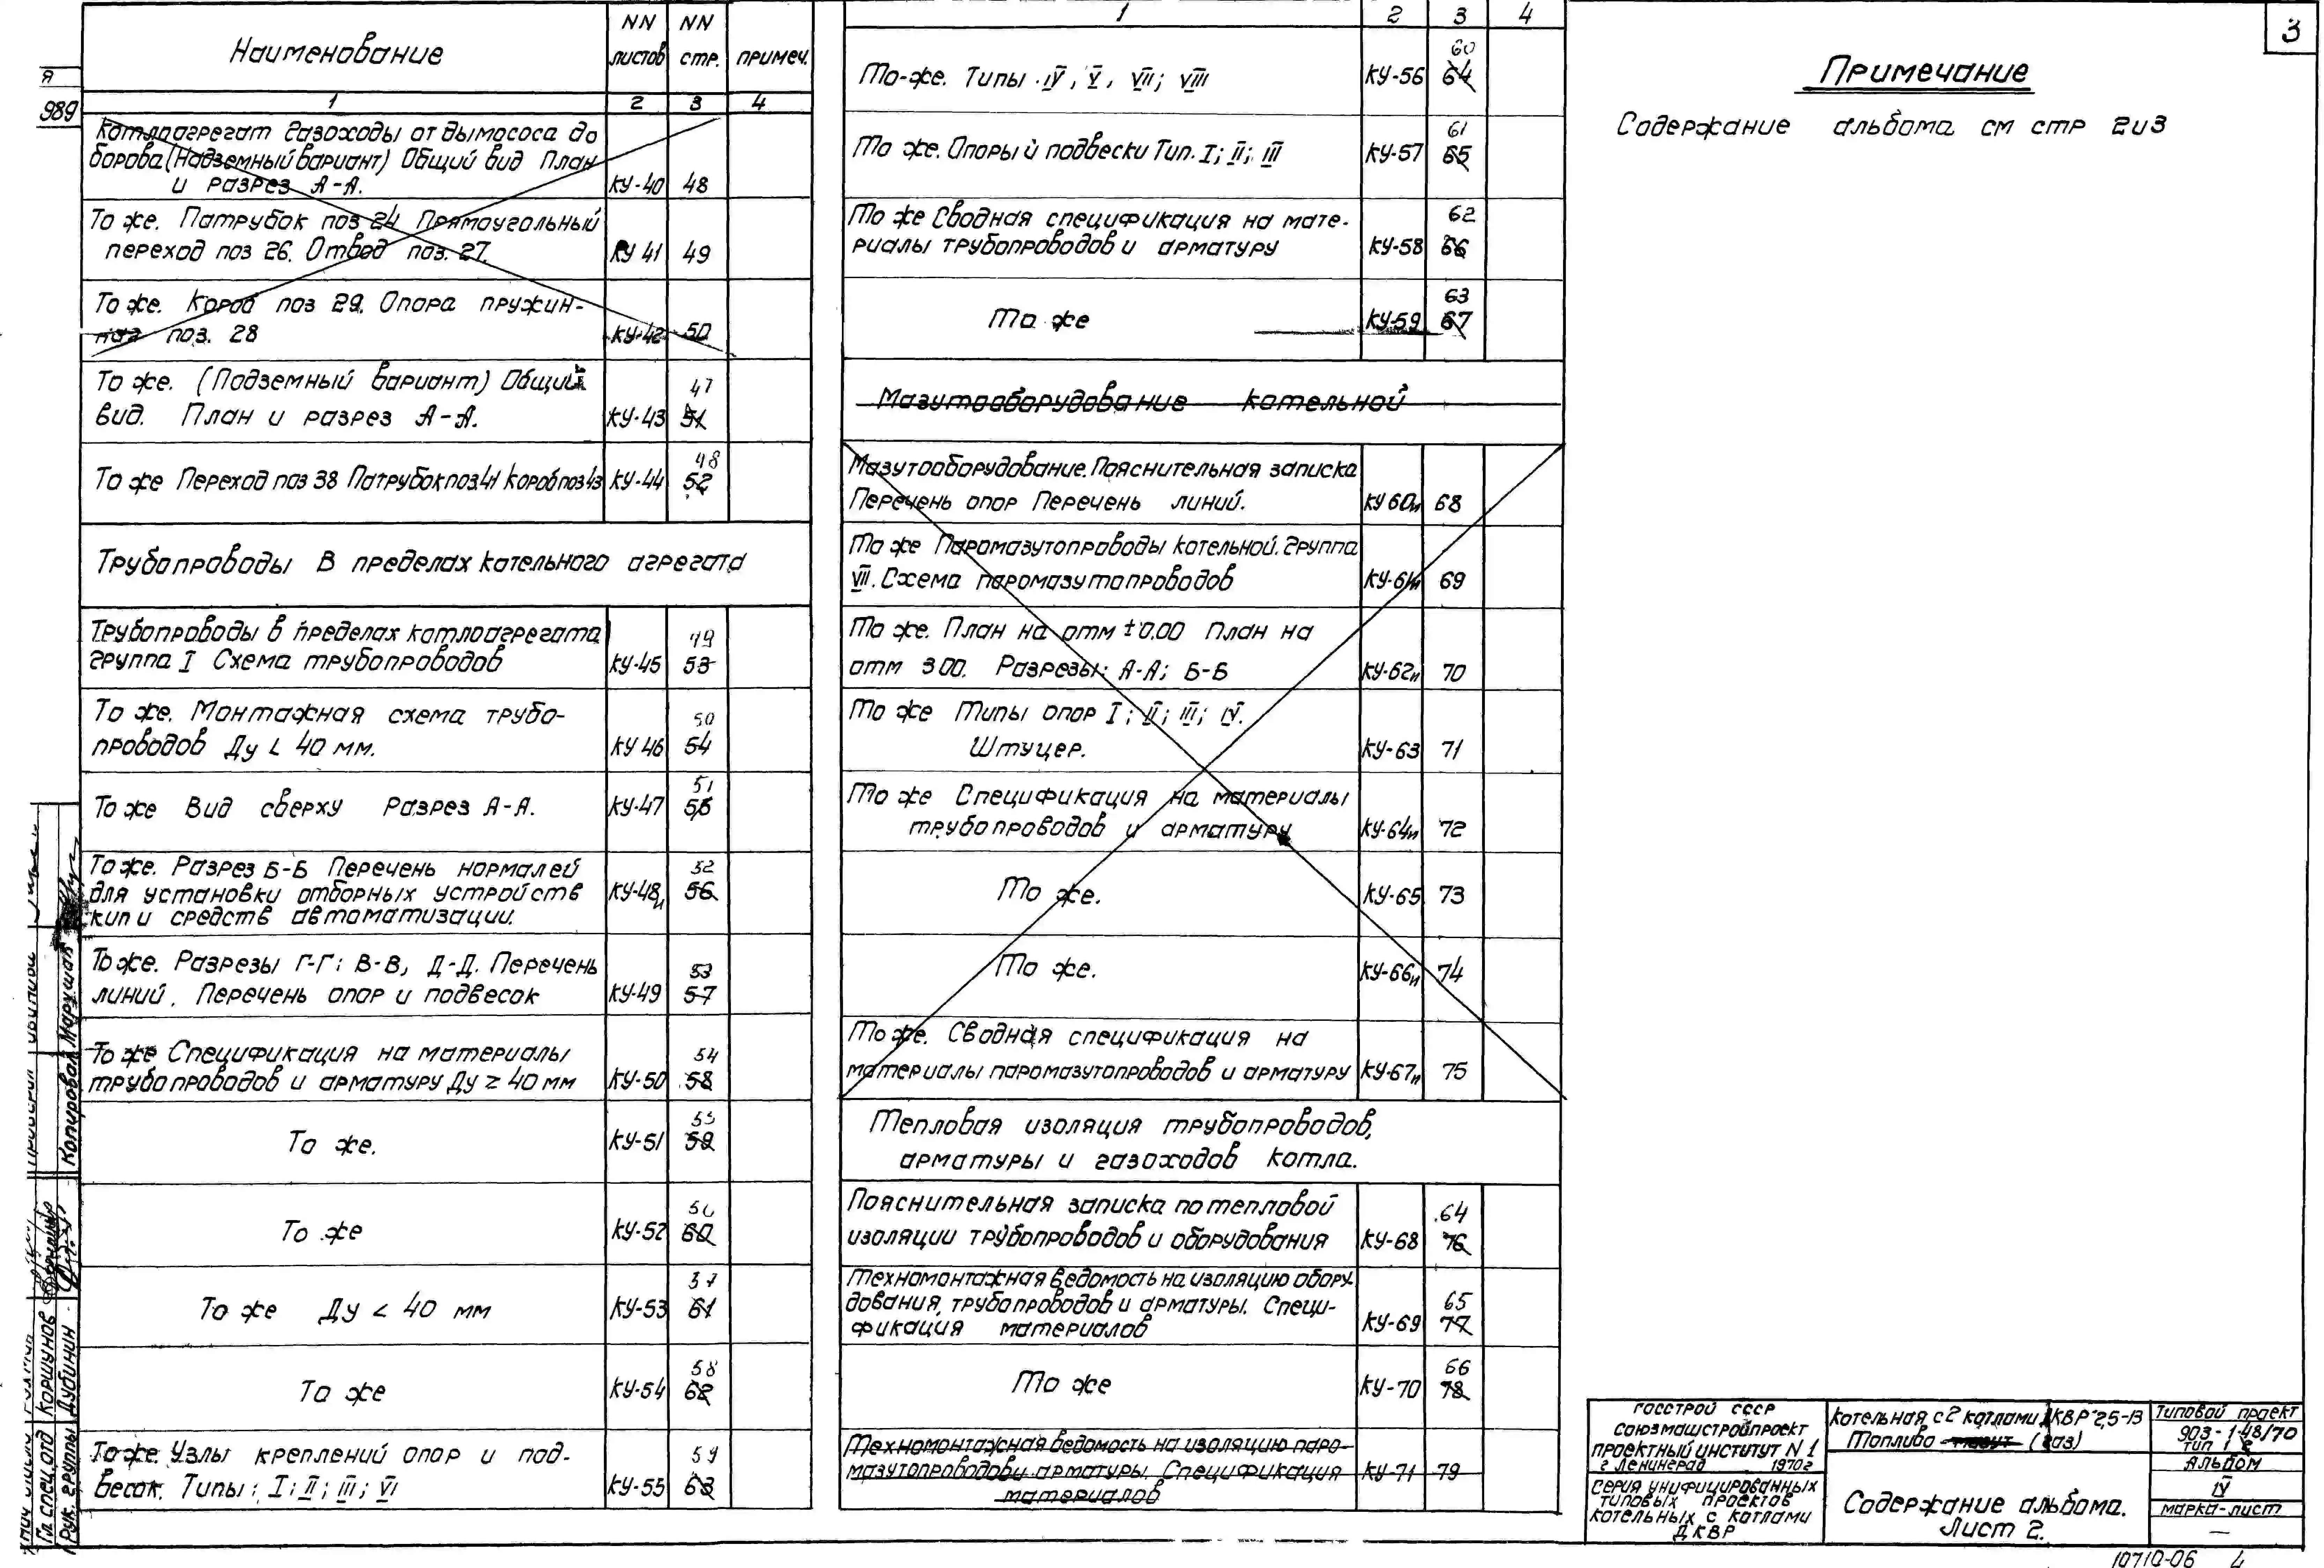 3
Я
989
Наименование
NN листов
NN стр.
примеч.
1 2 3 4
Котлоагрегат Газоходы от дымососа до
борова (Надземный вариант) Общий вид План
и разрез А-А. КУ-40 48
То же. Патрубок поз 24 Прямоугольный
переход поз 26. Отвод поз. 27. КУ 41 49
То же. Короб поз 29. Опора пружин-
ная поз. 28 КУ-42 50
То же. (Подземный вариант) Общий 47
вид. План и разрез А-А. КУ-43 51
48
То же Переход поз 38 Патрубок поз.41 Короб поз 43 КУ-44 52
Трубопроводы в пределах котельного агрегата
Трубопроводы в пределах котлоагрегата 49
группа I Схема трубопроводов КУ-45 53
То же. Монтажная схема трубо- 50
проводов Ду < 40 мм. КУ 46 54
51
То же Вид сверху Разрез А-А. КУ-47 55
То же. Разрез Б-Б Перечень нормалей 52
для установки отборных устройств КУ-48и 56
кип и средств автоматизации.
То же. Разрезы Г-Г; В-В, Д-Д. Перечень 53
линий. Перечень опор и подвесок КУ-49 57
То же Спецификация на материалы 54
трубопроводов и арматуру Ду ≥ 40 мм КУ-50 58
55
То же. КУ-51 59
56
То же КУ-52 60
57
То же Ду < 40 мм КУ-53 61
58
То же КУ-54 62
То же. Узлы креплений опор и под- 59
весок. Типы: I; II; III; VI КУ-55 63
1 2 3 4
60
То-же. Типы IV, V, VII; VIII КУ-56 64
61
То же. Опоры и подвески Тип. I; II; III КУ-57 65
То же Сводная спецификация на мате- 62
риалы трубопроводов и арматуру КУ-58 66
63
То же КУ-59 67
Мазутооборудование котельной
Мазутооборудование. Пояснительная записка
Перечень опор Перечень линий. КУ 60и 68
То же Паромазутопроводы котельной. Группа
VII. Схема паромазутопроводов КУ-61и 69
То же. План на отм ±0.00 План на
отм 3.00. Разрезы: А-А; Б-Б КУ-62и 70
То же Типы опор I; II; III; IV.
Штуцер. КУ-63 71
То же Спецификация на материалы
трубопроводов и арматуру КУ-64и 72
То же. КУ-65 73
То же. КУ-66и 74
То же. Сводная спецификация на
материалы паромазутопроводов и арматуру КУ-67и 75
Тепловая изоляция трубопроводов,
арматуры и газоходов котла.
Пояснительная записка по тепловой 64
изоляции трубопроводов и оборудования КУ-68 76
Техномонтажная ведомость на изоляцию обору-
дования, трубопроводов и арматуры. Специ- 65
фикация материалов КУ-69 77
66
То же КУ-70 78
Техномонтажная ведомость на изоляцию паро-
мазутопроводов и арматуры. Спецификация КУ-71 79
материалов
Примечание
Содержание альбома см стр 2и3
Госстрой СССР
Союзмашстройпроект
проектный институт N 1
г Ленинград 1970г
Серия унифицированных
типовых проектов
котельных с котлами
ДКВР
Котельная с 2 котлами ДКВР 2,5-13
Топливо мазут (газ)
Содержание альбома.
Лист 2.
Типовой проект
903-1-48/70
тип 1 г
Альбом
IV
марка-лист
—
10710-06 4
Копировал Марушак
Гл спец. отд Коршунов
Рук. группы Дубинин